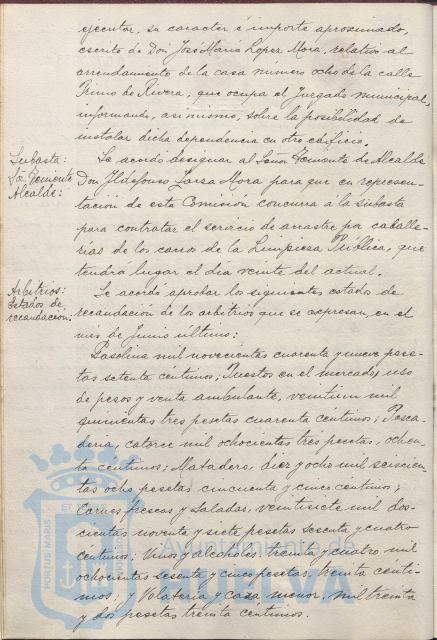 ejecutar, su caracter é importe aproximado,
escrito de Don José Maria Lopez Mora, relativo al
arrendamiento de la casa número ocho de la calle
Primo de Rivera, que ocupa el Juzgado municipal,
informando, asi mismo, sobre la posibilidad de
instalar dicha dependencia en otro edificio.
Subasta:
Sr. Teniente
Alcalde:
Se acordó designar al Señor Teniente de Alcalde
Don Ildefonso Mora para que en represen-
tación de esta Comisión concurra á la subasta
para contratar el servicio de arrastre por caballe-
rias de los carros de la Limpieza Pública, que
tendrá lugar el dia veinte del actual.
Arbitrios:
Estados de
recaudación:
Se acordó aprobar los siguientes estados de
recaudación de los arbitrios que se expresan, en el
mes de Junio último:
Gasolina mil novecientas cuarenta y nueve pese-
tas setenta céntimos; Puestos en el mercado, uso
de pesos y venta ambulante, veintiun mil
quinientas tres pesetas cuarenta centimos; Pesca-
deria, catorce mil ochocientas tres pesetas, ochen-
ta céntimos; Matadero, diez y ocho mil seiscien-
tas ocho pesetas cincuenta y cinco centimos;
Carnes frescas y Saladas, veintisiete mil dos-
cientas noventa y siete pesetas sesenta y cuatro
centimos; Vinos y alcoholes, treinta y cuatro mil
ochocientas sesenta y cinco pesetas, treinta centi-
mos; y Volateria y caza menor, mil treinta
y dos pesetas treinta céntimos.
PORTUS MARIS ET
Ayuntamiento de
HUELVA